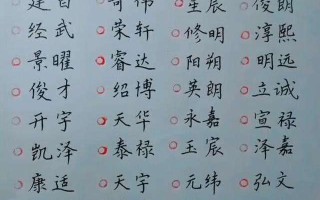 经武 荣轩 修明 淳熙
景曜 睿达 阳朔 明远
俊才 绍博 英朗 立诚
开宇 天华 永嘉 宣禄
凯泽 泰禄 玉宸 泽嘉
康适 天宇 元纬 弘文